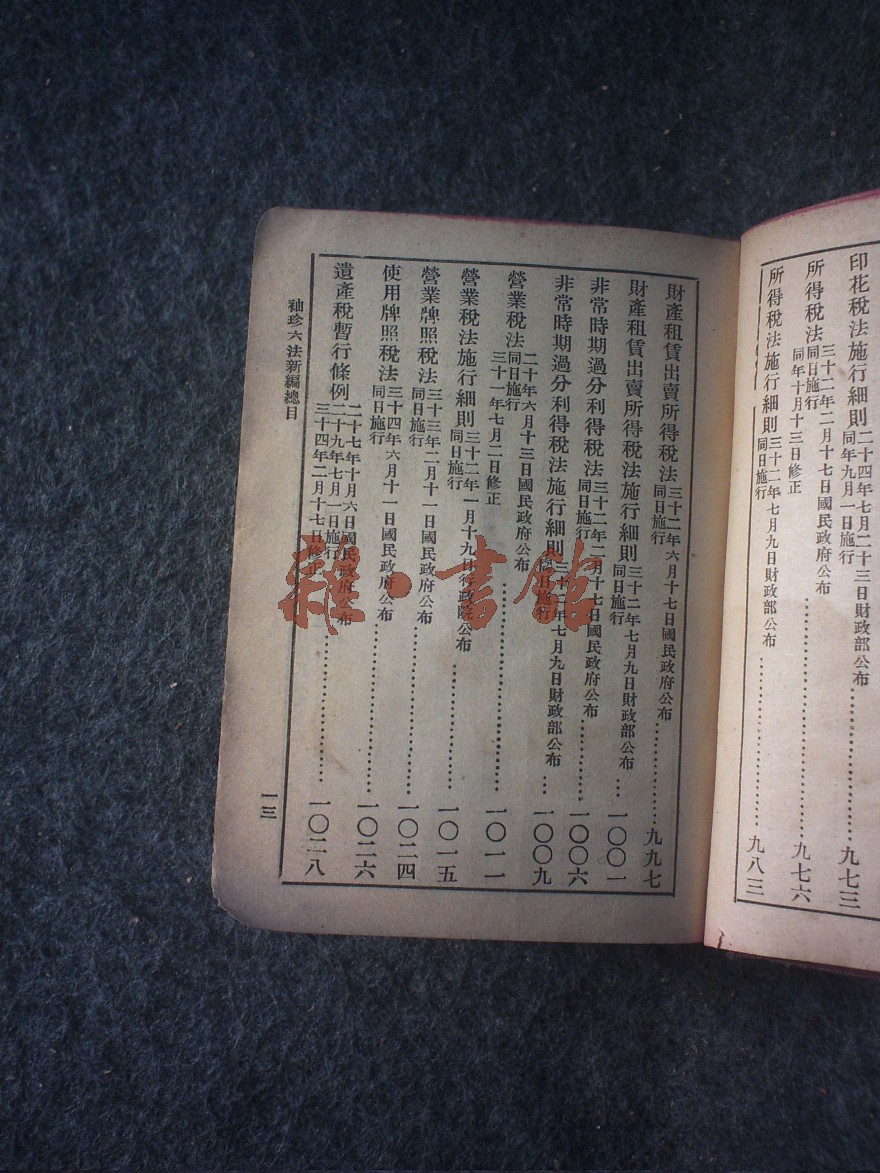 印花稅法施行細則 二十四年七月二十三日財政部公布 同年九月一日施行……九七三
所得稅法 三十二年二月十七日國民政府公布 同日施行 同年十月十三日修正……九七六
所得稅法施行細則 三十二年七月九日財政部公布 同日施行……九八三
財產租賃出賣所得稅法 三十二年六月十七日國民政府公布 同日施行……九九七
財產租賃出賣所得稅法施行細則 三十二年七月九日財政部公布 同日施行……一〇〇一
非常時期過分利得稅法 三十二年二月十七日國民政府公布 同日施行……一〇〇六
非常時期過分利得稅法施行細則 三十二年七月九日財政部公布 同日施行……一〇〇九
營業稅法 二十年六月十三日國民政府公布 同日施行 三十一年七月二日修正……一〇一一
營業稅法施行細則 三十二年一月十九日行政院公布 同日施行……一〇一五
營業牌照稅法 三十三年二月十一日國民政府公布 同日施行……一〇二四
使用牌照稅法 三十四年六月十一日國民政府公布 同日施行……一〇二六
遺產稅暫行條例 二十七年十月六日國民政府公布 二十九年七月一日施行 三十四年二月十七日修正……一〇二八
袖珍六法新編總目
一三
雜·書館